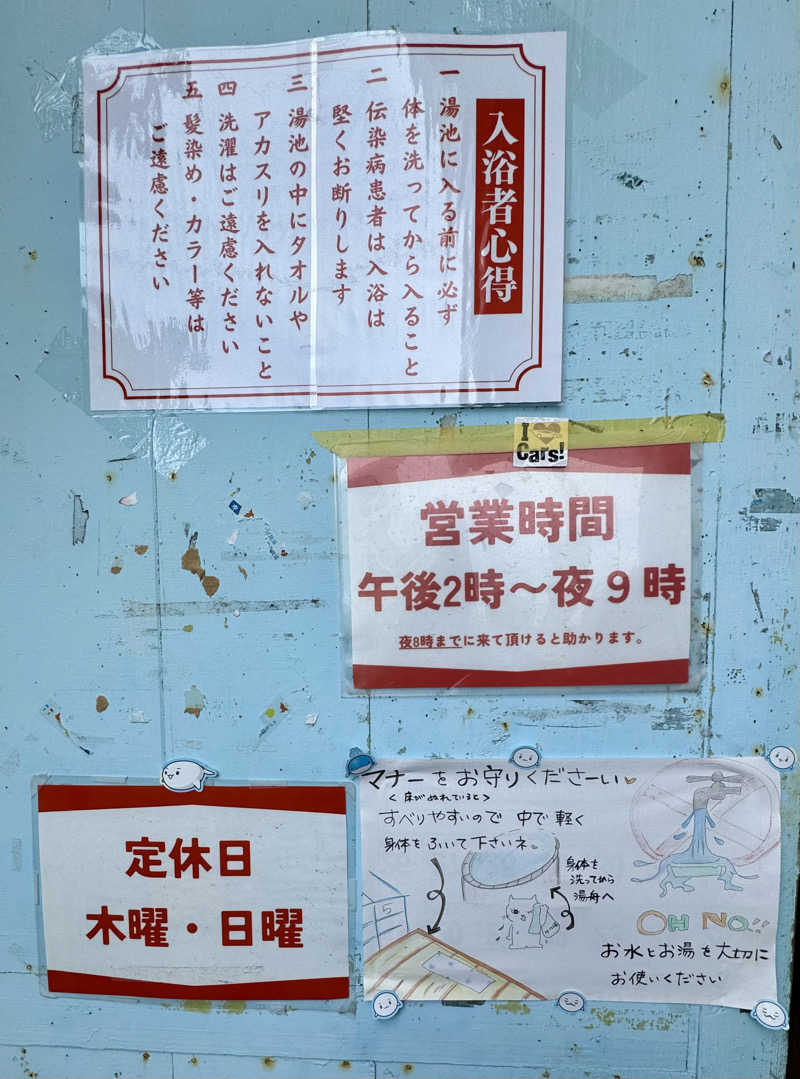 入浴者心得
一 湯池に入る前に必ず
体を洗ってから入ること
二 伝染病患者は入浴は
堅くお断りします
三 湯池の中にタオルや
アカスリを入れないこと
四 洗濯はご遠慮ください
五 髪染め・カラー等は
ご遠慮ください
I
Cars!
営業時間
午後2時～夜9時
夜8時までに来て頂けると助かります。
定休日
木曜・日曜
マナーをお守りくださーい
<床がぬれていると>
すべりやすいので 中で軽く
身体をふいて下さいネ
身体を
洗ってから
湯舟へ
OH NO!!
お水とお湯を大切に
お使いください